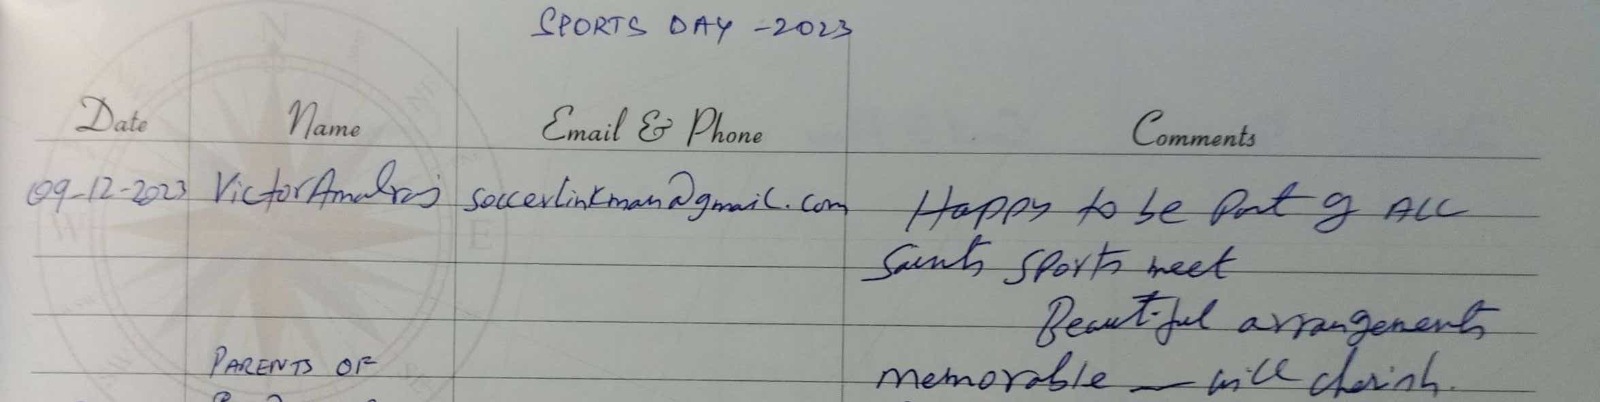 SPORTS DAY - 2023
Date Name Email & Phone Comments
09-12-2023 Victor Amalraj soccerlinkman@gmail.com Happy to be Part of All
Saints Sports meet
Beautiful arrangements
PARENTS OF
memorable — will cherish.